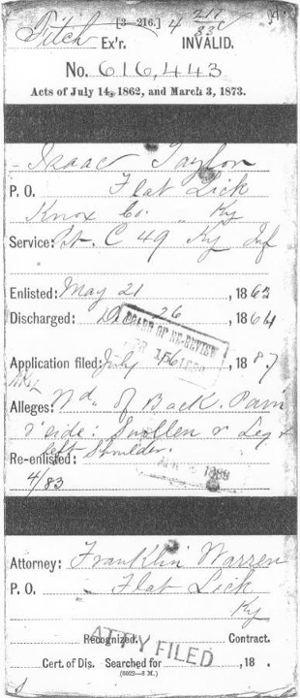 [3—216.] 4
Fitch Ex'r. INVALID.
No. 616,443
Acts of July 14, 1862, and March 3, 1873.
Isaac Taylor
P. O. Flat Lick
Knox Co. " Ky
Service: Pt. C 49 Ky Inf
Enlisted: May 21, 1863
Discharged: Dec 26, 1864
BOARD OF RE-REVIEW
Application filed: July, 1887
Alleges: of Back. Pain
r side: Swollen r Leg
left Shoulder.
Re-enlisted:
4/83
Attorney: Franklin Warren
P. O. Flat Lick
Ky
Recognized. Contract.
ATT'Y FILED
Cert. of Dis. Searched for, 18 .